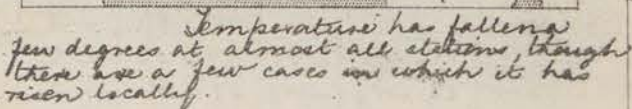 Temperature has fallen a
few degrees at almost all stations, though
there are a few cases in which it has
risen locally.